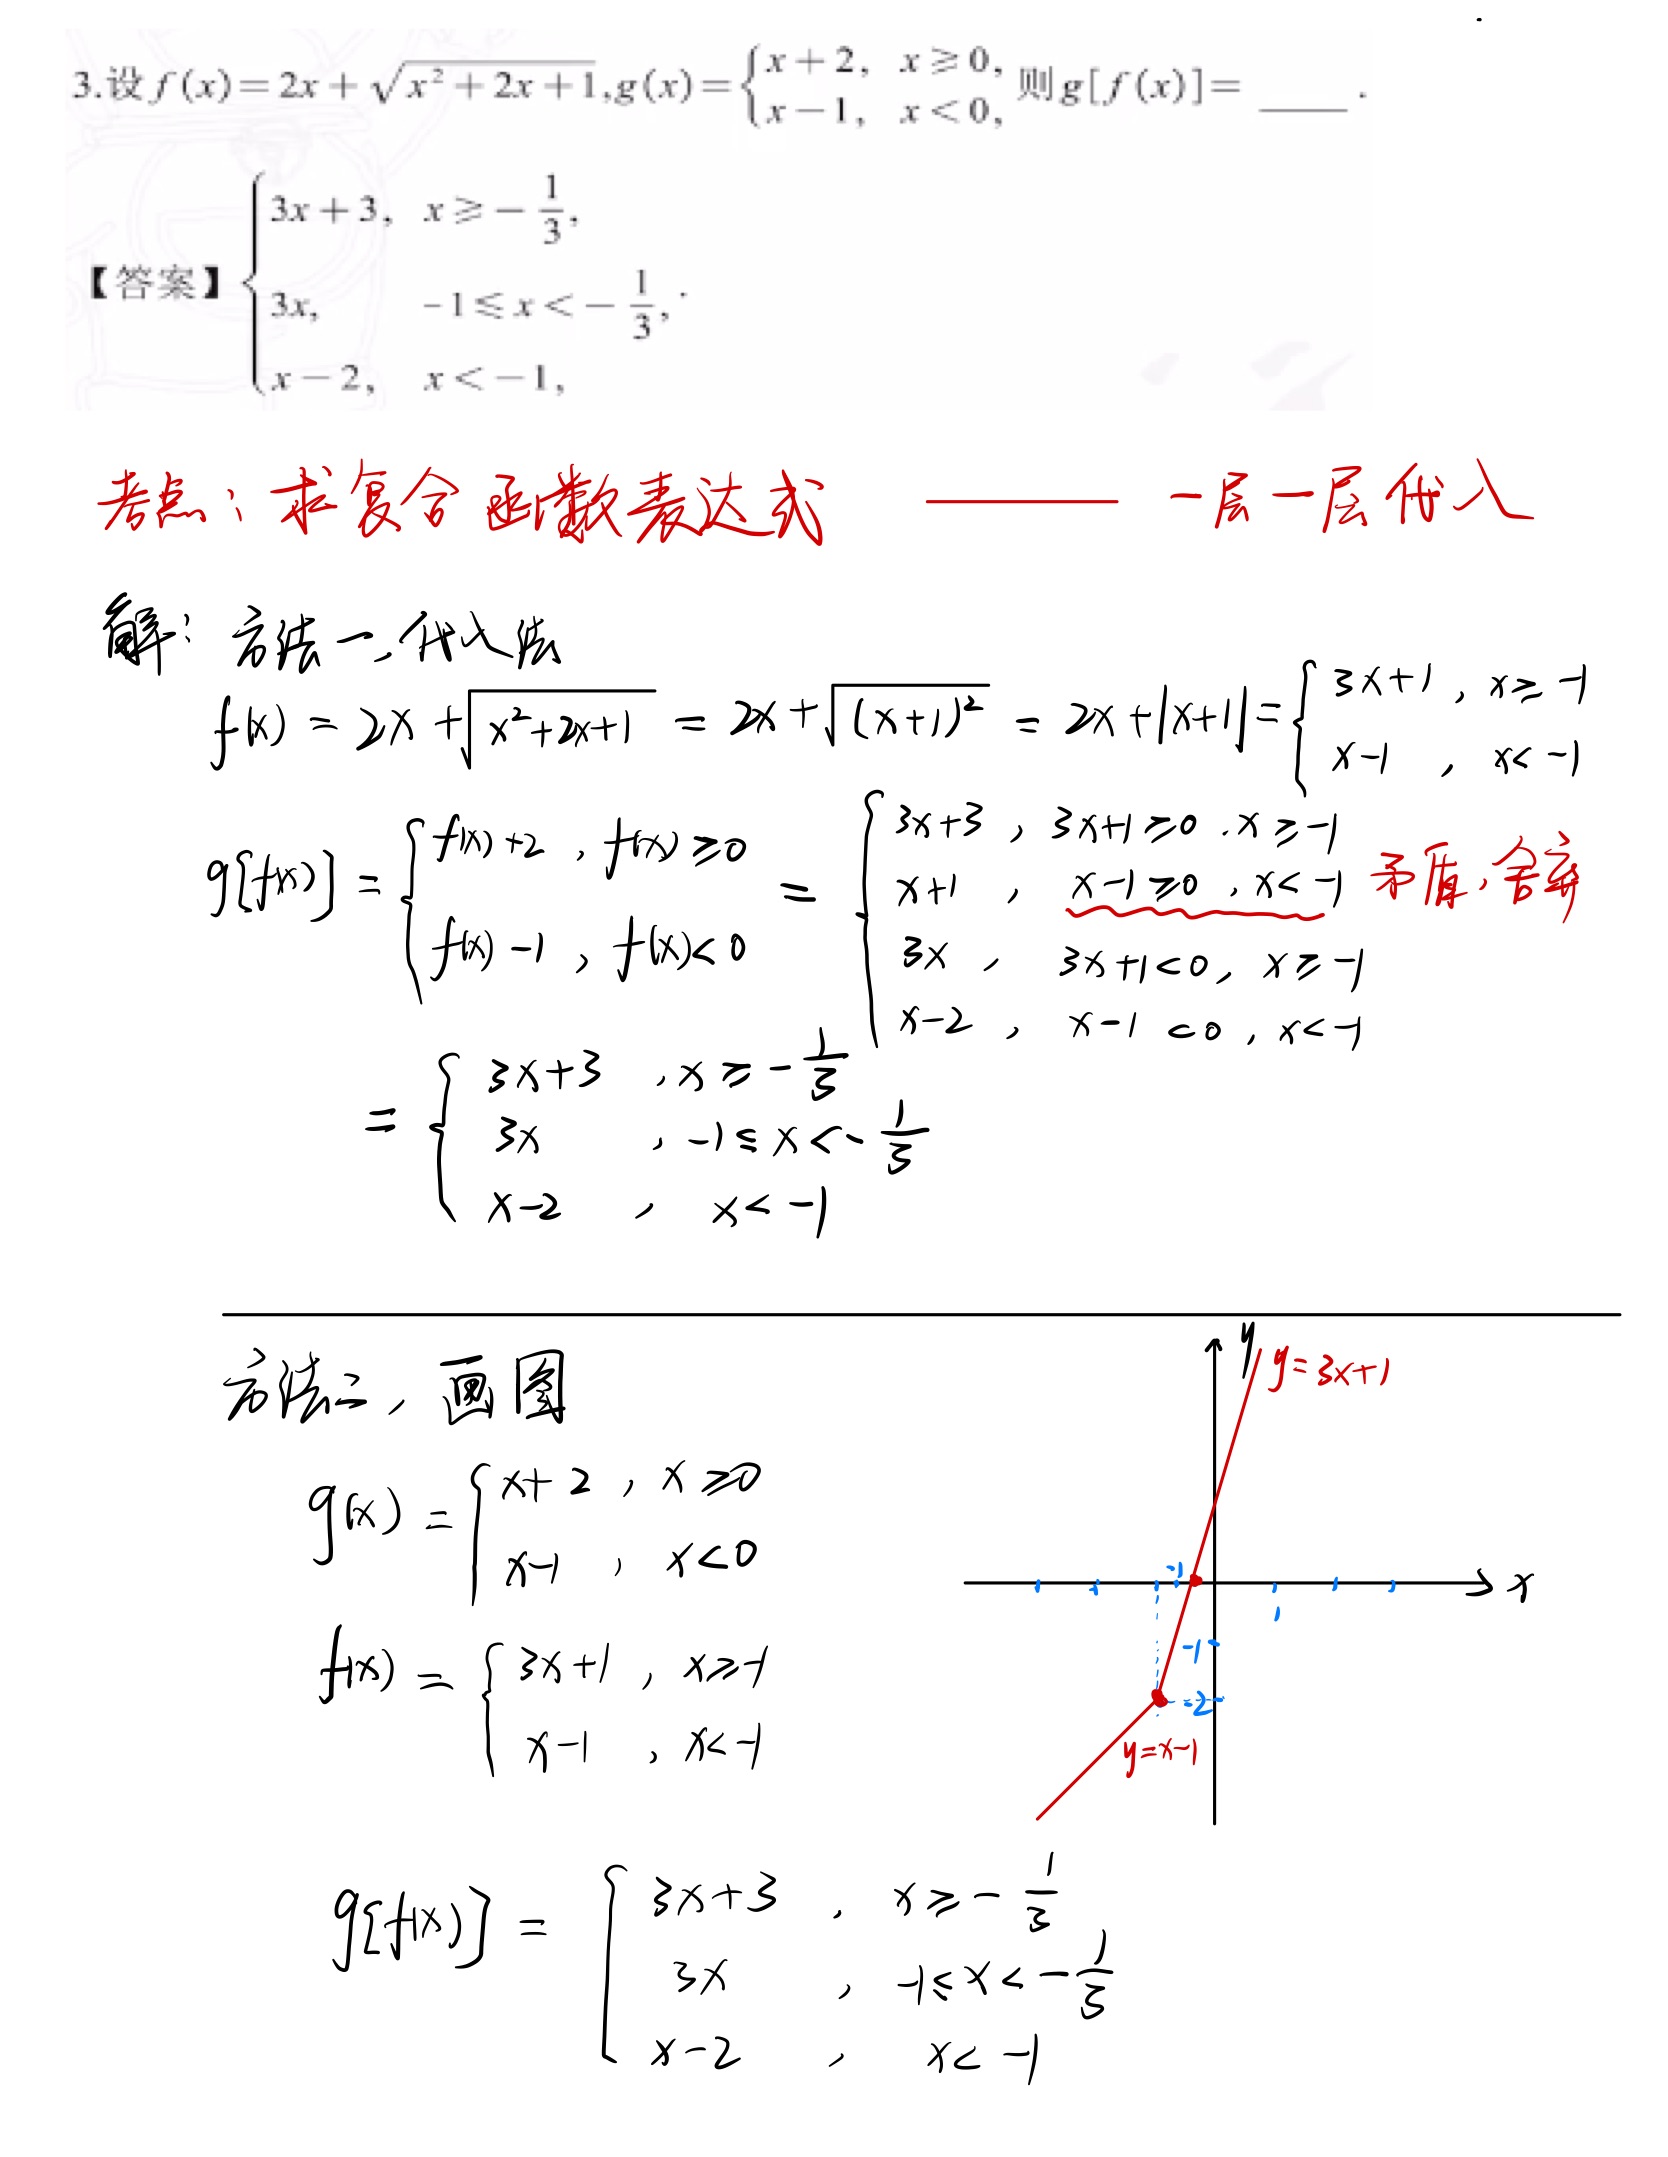 3.设 f(x)=2x+√(x²+2x+1),g(x)={x+2, x≥0, x-1, x<0, 则g[f(x)]= ____ .
【答案】{3x+3, x≥-1/3, 3x, -1≤x<-1/3, x-2, x<-1, .
考点：求复合函数表达式 —— 一层一层代入
解：方法一，代入法
f(x) = 2x+√(x²+2x+1) = 2x+√((x+1)²) = 2x+|x+1| = {3x+1, x≥-1 x-1, x<-1
g[f(x)] = {f(x)+2, f(x)≥0 f(x)-1, f(x)<0 = {3x+3, 3x+1≥0, x≥-1
x+1, x-1≥0, x<-1 矛盾，舍弃
3x, 3x+1<0, x≥-1
x-2, x-1<0, x<-1
= {3x+3, x≥-1/3
3x, -1≤x<-1/3
x-2, x<-1
方法二，画图
g(x) = {x+2, x≥0
x-1, x<0
f(x) = {3x+1, x≥-1
x-1, x<-1
y
y=3x+1
x
-1
1
-1
-2
y=x-1
g[f(x)] = {3x+3, x≥-1/3
3x, -1≤x<-1/3
x-2, x<-1